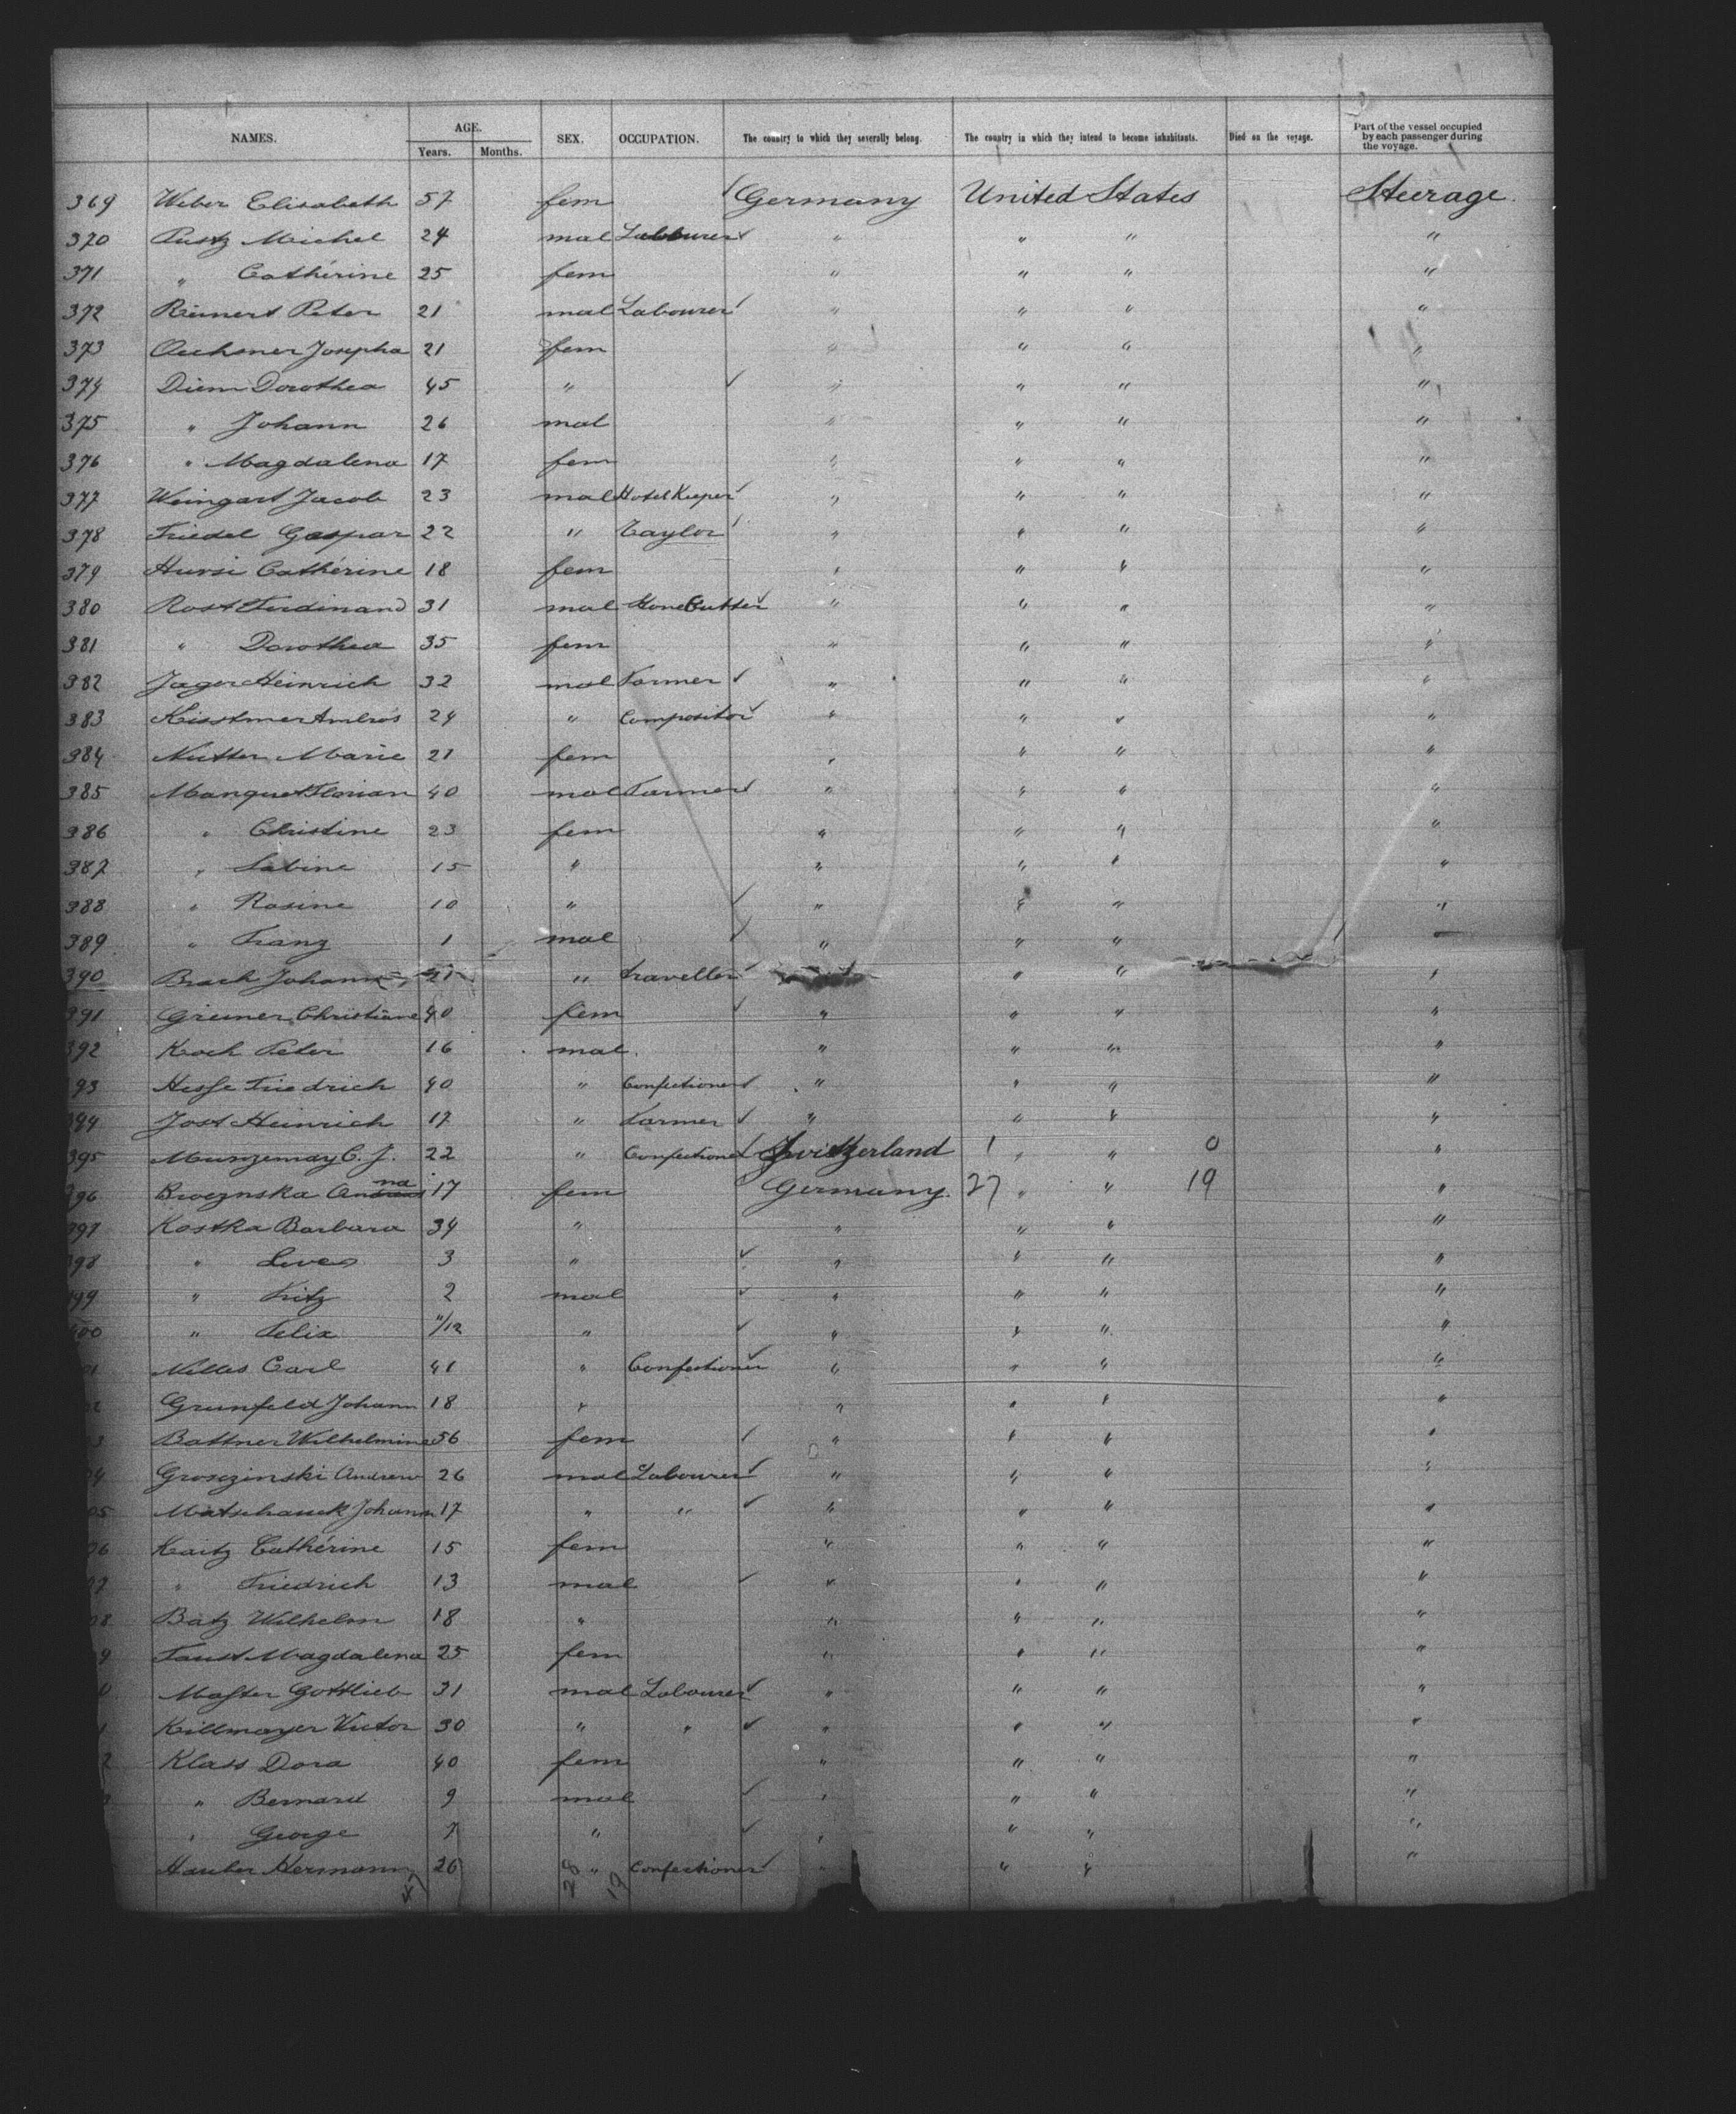 NAMES. AGE. Years. Months. SEX. OCCUPATION. The country to which they severally belong. The country in which they intend to become inhabitants. Died on the voyage. Part of the vessel occupied by each passenger during the voyage.
369 Weber Elisabeth 57 fem Germany United States Steerage.
370 Michel 24 mal Labourer " " " "
371 " Cathérine 25 fem " " " "
372 Reinert Peter 21 mal Labourer " " " "
373 Oechsner Josepha 21 fem " " " "
374 Diem Dorothea 45 " " " " "
375 " Johann 26 mal " " " "
376 " Magdalena 17 fem " " " "
377 Weingart Jacob 23 mal Hotel Keeper " " " "
378 Friedel Gaspar 22 " Taylor " " " "
379 Cathérine 18 fem " " " "
380 Rost Ferdinand 31 mal " " " "
381 " Dorothea 35 fem " " " "
382 Jager Heinrich 32 mal Farmer " " " "
383 Ambros 24 " Compositor " " " "
384 Marie 21 fem " " " "
385 Manquet Florian 40 mal Farmer " " " "
386 " Christine 23 fem " " " "
387 " Sabine 15 " " " " "
388 " Rosine 10 " " " " "
389 " Franz 1 mal " " " "
390 Brach Johann 21 " traveller " " "
391 Greiner Christiane 40 fem " " " "
392 Koch Peter 16 mal. " " " "
93 Hesse Friedrich 40 " Confectioner " " " "
394 Jost Heinrich 17 " Farmer " " " "
395 Munzemay C. J. 22 " Confectioner Switzerland 1 " " 0 "
396 Broeznska na 17 fem Germany. 27 " " 19 "
397 Kostka Barbara 34 " " " " "
398 " 3 " " " " "
399 " Fritz 2 mal " " " "
400 " Felix 11/12 " " " " "
1 Nilles Carl 41 " Confectioner " " " "
2 Grunfeld Johann 18 " " " " "
3 Battner Wilhelmine 56 fem " " " "
4 Grosczinski Andrew 26 mal Labourer " " " "
05 Matschauck Johann 17 " " " " " "
06 Kaitz Cathérine 15 fem " " " "
07 " Friedrich 13 mal " " " "
08 Batz Wilhelm 18 " " " " "
9 Faust Magdalena 25 fem " " " "
0 Master Gottlieb 31 mal Labourer " " " "
1 Killmayer Victor 30 " " " " " "
2 Klass Dora 40 fem " " " "
3 " Bernard 9 mal " " " "
" George 7 " " " " "
Hauber Hermann 26 " Confectioner " " " "
47 28 19